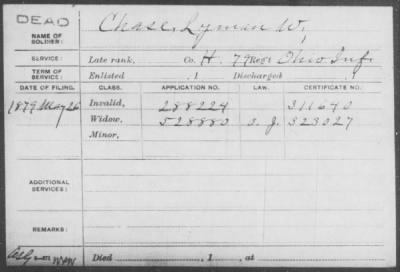 DEAD
NAME OF SOLDIER: Chase, Lyman W.
SERVICE: Late rank, Co. H. 79 Reg't Ohio Inf.
TERM OF SERVICE: Enlisted , 1 Discharged , 1
DATE OF FILING. CLASS. APPLICATION NO. LAW. CERTIFICATE NO.
1879 May 26 Invalid, 288224 311640
Widow, 528880 O. J. 323027
Minor,
ADDITIONAL SERVICES:
REMARKS:
Died , 1 , at